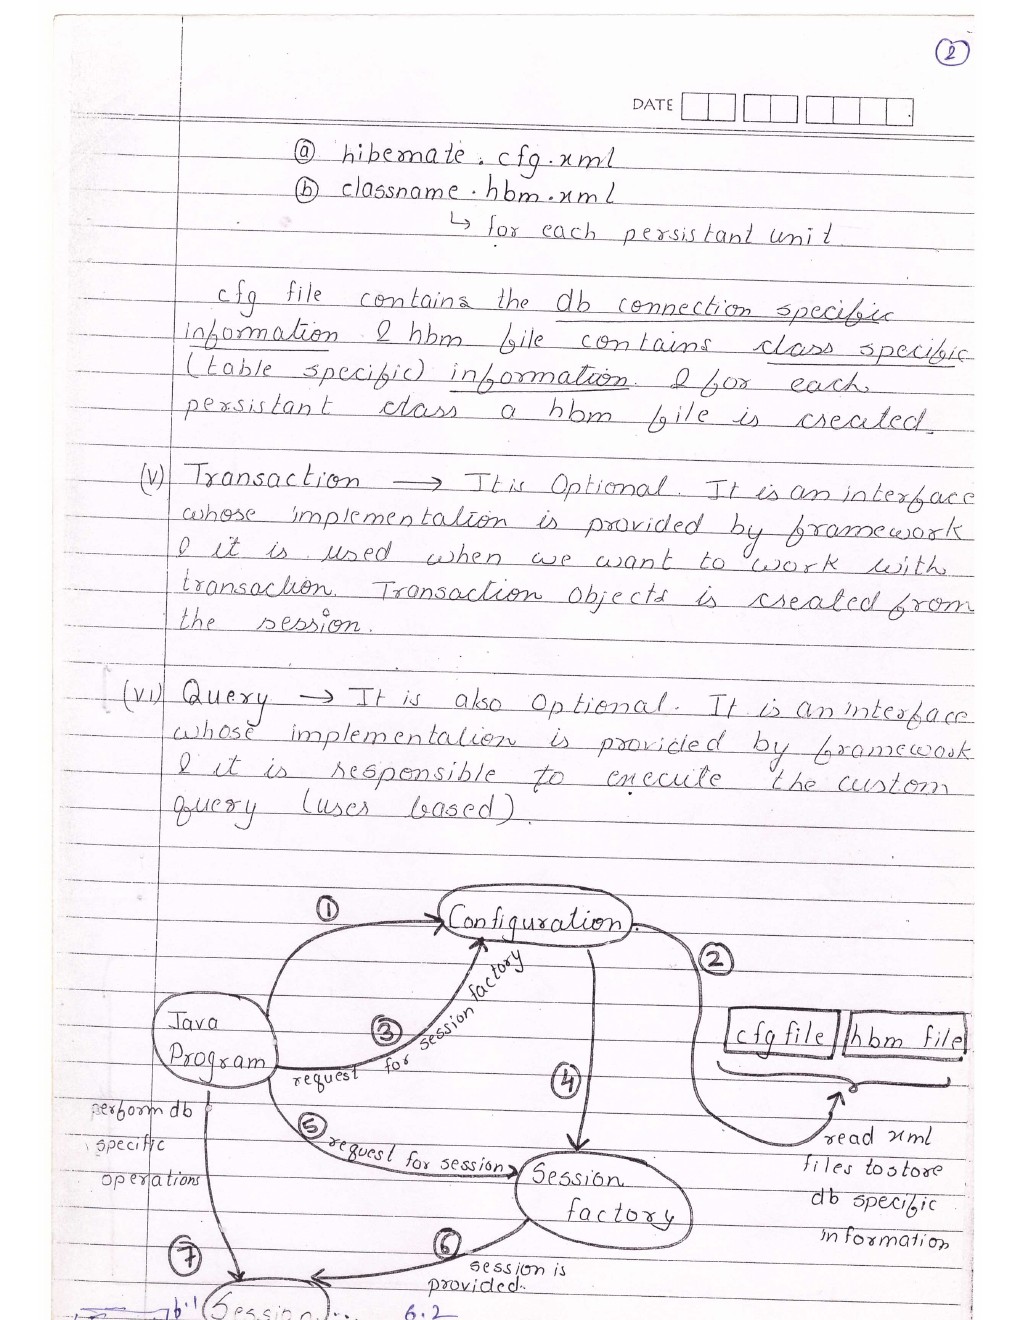 2
DATE
(a) hibernate.cfg.xml
(b) classname.hbm.xml
↳ for each persistant unit
cfg file contains the db connection specific
information & hbm file contains class specific
(table specific) information. & for each
persistant class a hbm file is created.
(v) Transaction → It is Optional. It is an interface
whose implementation is provided by framework
& it is used when we want to work with
transaction. Transaction objects is created from
the session.
(vi) Query → It is also Optional. It is an interface
whose implementation is provided by framework
& it is responsible to execute the custom
query (user based).
1
Configuration.
2
Java
Program
3
request for session factory
cfg file
hbm file
4
perform db
specific
operations
5
request for session
read xml
files to store
db specific
information
Session
factory
6
session is
provided.
7
6.1
Session
6.2